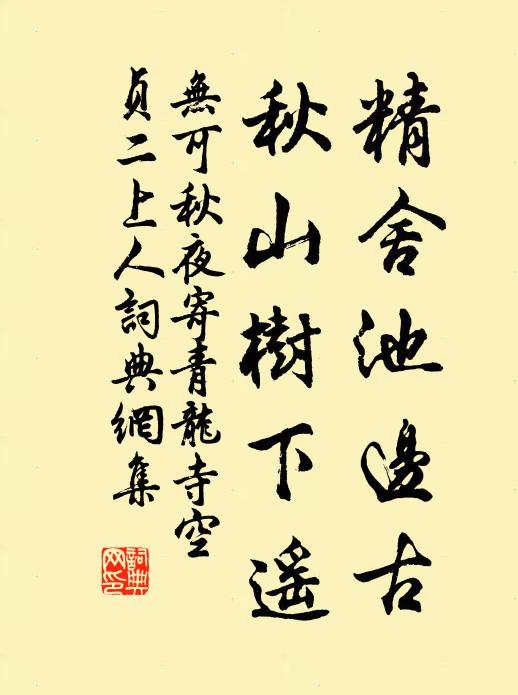 精舍池邊古
秋山樹下遥
無可秋夜寄青龍寺空
貞二上人詞典網集
詞典
网印